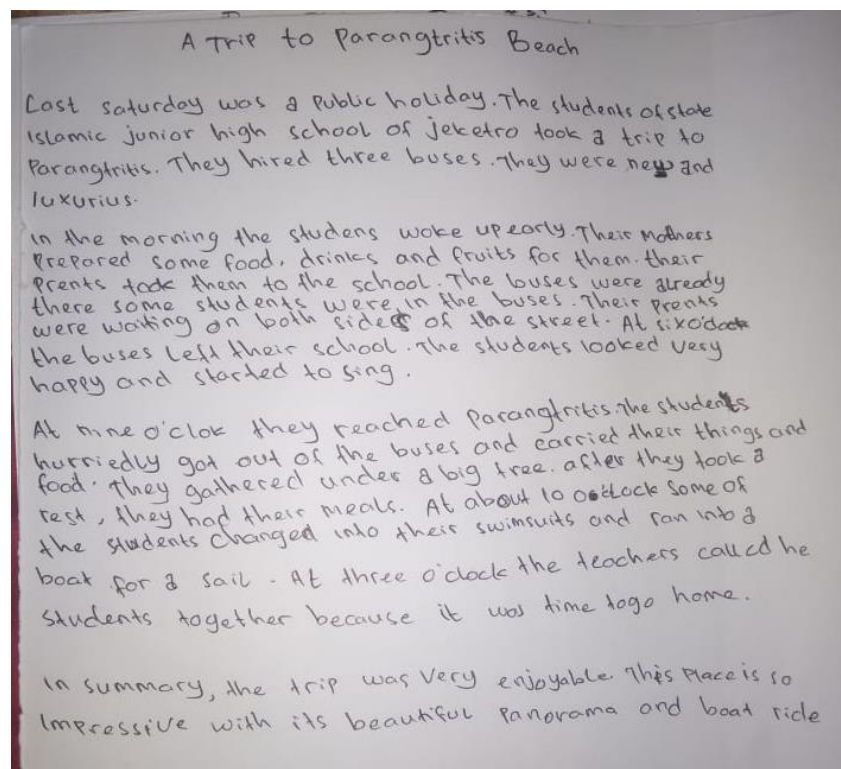 A Trip to Parangtritis Beach
Last saturday was a public holiday. The students of state
Islamic junior high school of jeketro took a trip to
Parangtritis. They hired three buses. They were new and
luxurius.
in the morning the studens woke up early. Their Mothers
Prepared some food, drinks and fruits for them. their
Prents took them to the school. The buses were already
there some students were in the buses. Their Prents
were waiting on both sides of the street. At six o'clock
the buses left their school. The students looked very
happy and started to sing.
At nine o'clok they reached Parangtritis. The students
hurriedly got out of the buses and carried their things and
food. They gathered under a big tree. after they took a
rest, they had their meals. At about 10 o'clock some of
the students changed into their swimsuits and ran into a
boat for a sail. At three o'clock the teachers called he
students together because it was time togo home.
In summary, the trip was very enjoyable. This Place is so
Impressive with its beautiful Panorama and boat ride